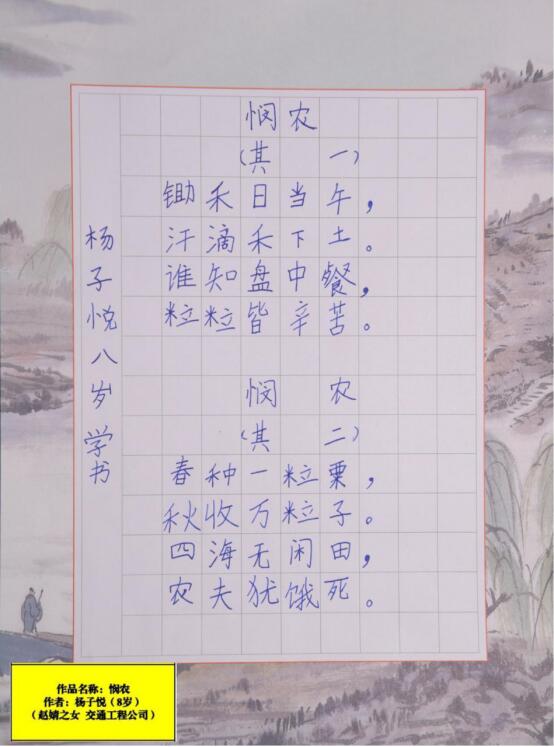 悯农
（其一）
锄禾日当午，
汗滴禾下土。
谁知盘中餐，
粒粒皆辛苦。
悯农
（其二）
春种一粒粟，
秋收万粒子。
四海无闲田，
农夫犹饿死。
杨子悦八岁学书
作品名称：悯农
作者：杨子悦（8岁）
（赵婧之女 交通工程公司）